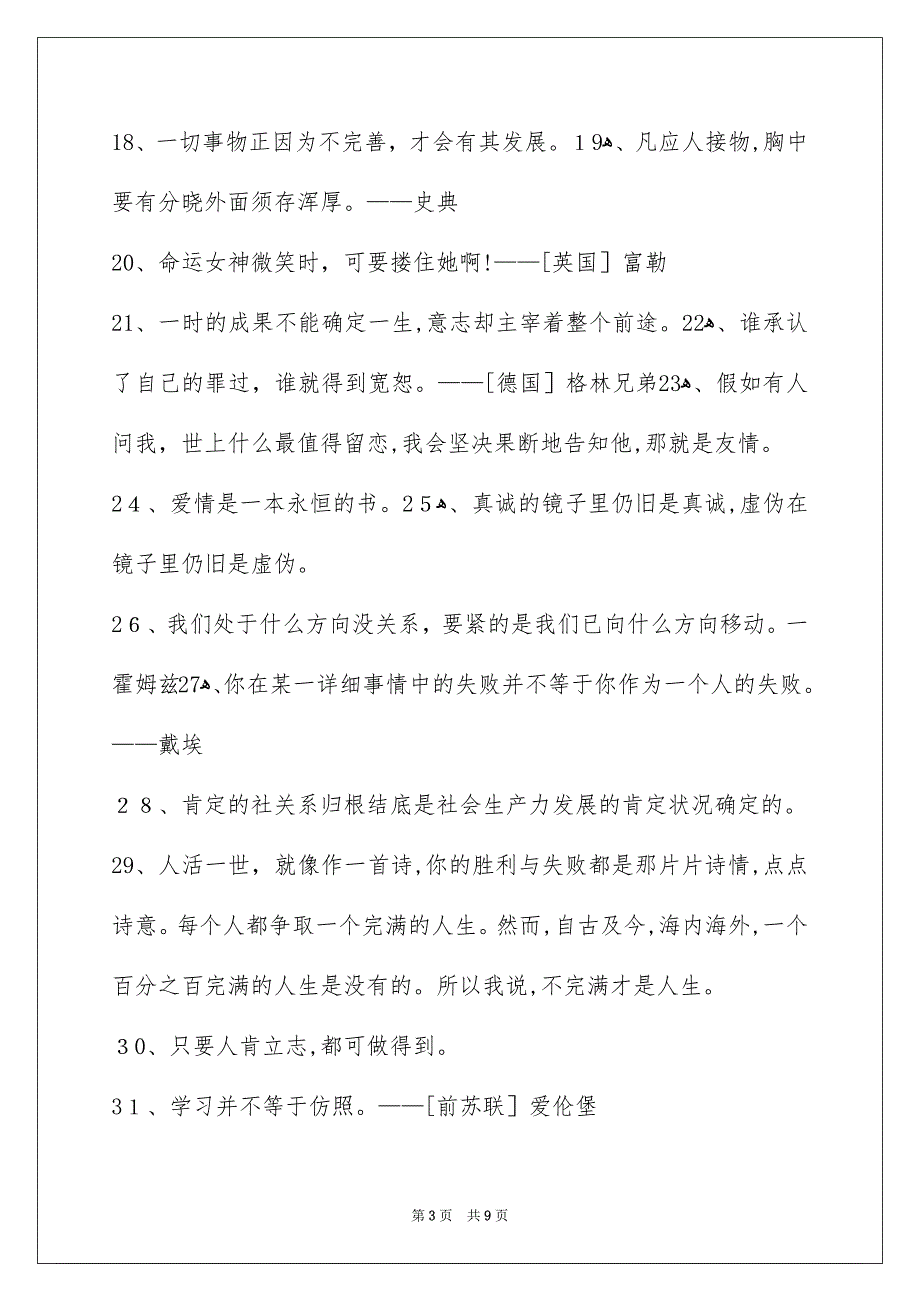 18、一切事物正因为不完善，才会有其发展。１9ﻫ、凡应人接物,胸中
要有分晓外面须存浑厚。——史典
20、命运女神微笑时，可要搂住她啊!——[英国］富勒
21、一时的成果不能确定一生,意志却主宰着整个前途。22ﻫ、谁承认
了自己的罪过，谁就得到宽恕。——[德国］格林兄弟23ﻫ、假如有人
问我，世上什么最值得留恋,我会坚决果断地告知他,那就是友情。
２4、爱情是一本永恒的书。２５ﻫ、真诚的镜子里仍旧是真诚,虚伪在
镜子里仍旧是虚伪。
２６、我们处于什么方向没关系，要紧的是我们已向什么方向移动。一
霍姆兹27ﻫ、你在某一详细事情中的失败并不等于你作为一个人的失败。
——戴埃
２８、肯定的社关系归根结底是社会生产力发展的肯定状况确定的。
29、人活一世，就像作一首诗,你的胜利与失败都是那片片诗情,点点
诗意。每个人都争取一个完满的人生。然而,自古及今,海内海外,一个
百分之百完满的人生是没有的。所以我说,不完满才是人生。
３0、只要人肯立志,都可做得到。
3１、学习并不等于仿照。——[前苏联］爱伦堡
第 3 页 共 9 页